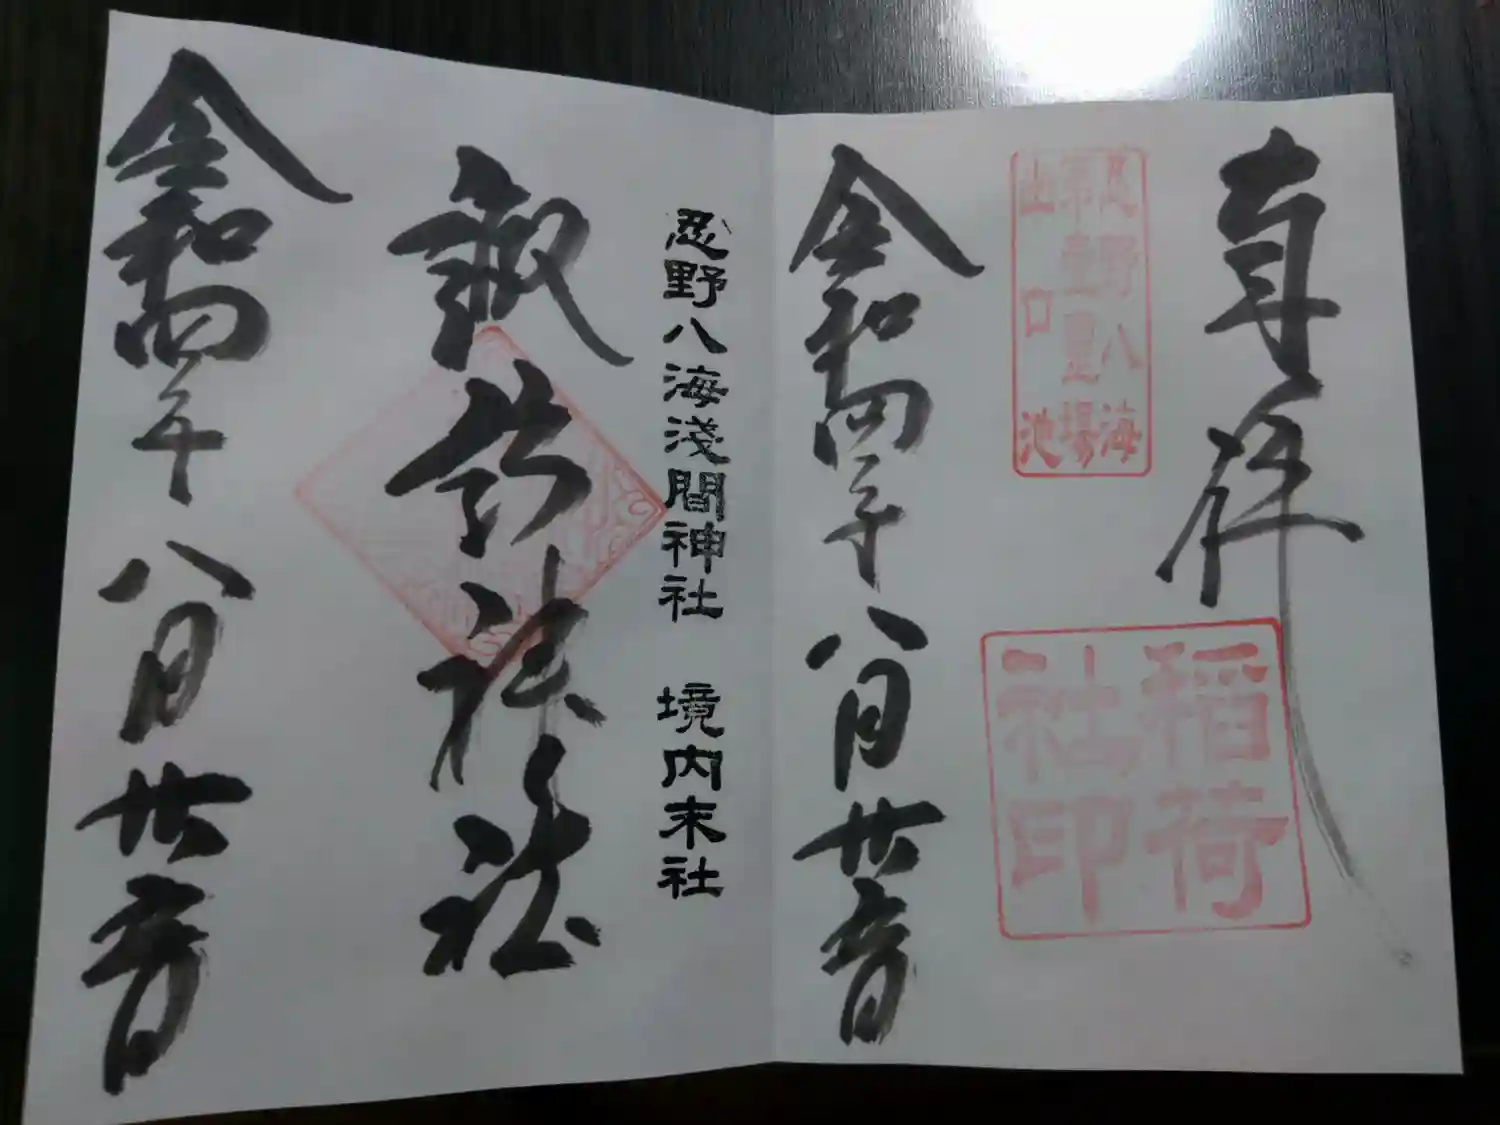 奉拝
忍野八海
第壹霊場
出口池
稲荷
社印
令和四年八月廿日
忍野八海淺間神社 境内末社
諏訪神社
令和四年八月廿日